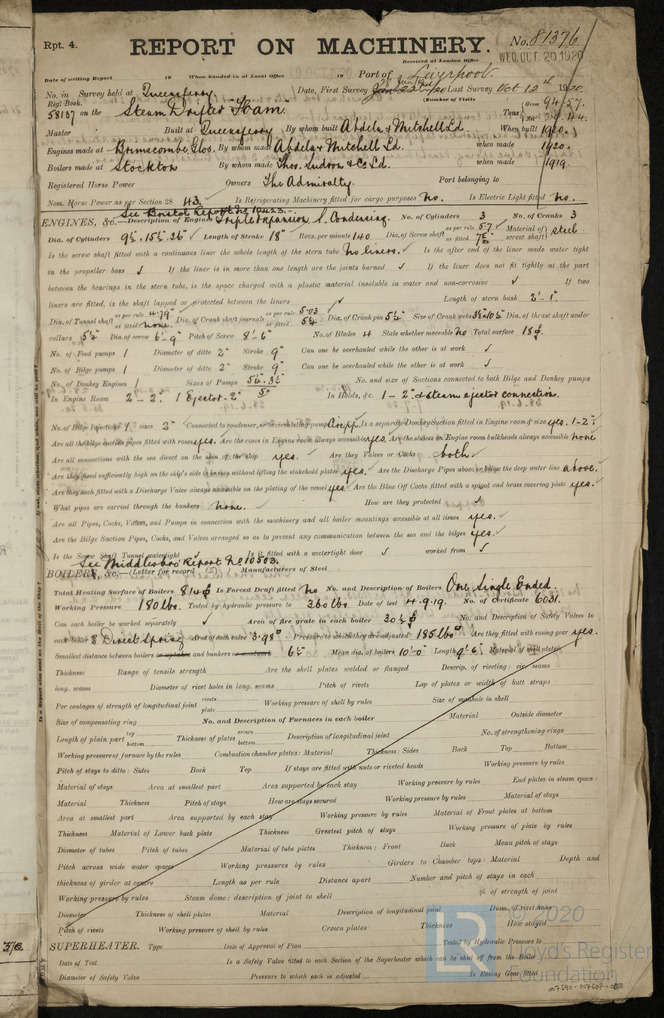 Rpt. 4.
REPORT ON MACHINERY. No. 81376
Received at London Office WED. OCT. 20 1920
Date of writing Report 19 When handed in at Local Office 19 Port of Liverpool
No. in Survey held at Queensferry Date, First Survey Last Survey Oct 12th 1920
Reg. Book. (Number of Visits
58137 on the Steam Drifter "Foam" Tons Gross 94.27 Net
Master Built at Queensferry By whom built Abdela & Mitchell Ld. When built 1920.
Engines made at Brimscombe, Glos. By whom made Abdela & Mitchell Ld. when made 1920.
Boilers made at Stockton By whom made Thos. Sudron & Co Ld. when made 1919.
Registered Horse Power Owners The Admiralty. Port belonging to
Nom. Horse Power as per Section 28 43. Is Refrigerating Machinery fitted for cargo purposes No. Is Electric Light fitted No.
See Bristol Report No 10423.
ENGINES, &c.—Description of Engines Triple Expansion S. Condensing. No. of Cylinders 3 No. of Cranks 3
Dia. of Cylinders 9½. 15½. 26 Length of Stroke 18" Revs. per minute 140 Dia. of Screw shaft as per rule 5.7 as fitted Material of screw shaft steel
Is the screw shaft fitted with a continuous liner the whole length of the stern tube No liners. Is the after end of the liner made water tight
in the propeller boss ✓ If the liner is in more than one length are the joints burned ✓ If the liner does not fit tightly at the part
between the bearings in the stern tube, is the space charged with a plastic material insoluble in water and non-corrosive ✓ If two
liners are fitted, is the shaft lapped or protected between the liners ✓ Length of stern bush 2'-1"
Dia. of Tunnel shaft as per rule 4.79 as fitted none. Dia. of Crank shaft journals as per rule 5.03 as fitted 5¼ Dia. of Crank pin 5¼" Size of Crank webs Dia. of thrust shaft under
collars 5¼ Dia. of screw 6'-9" Pitch of Screw 8'-6" No. of Blades 4 State whether moveable No Total surface 18
No. of Feed pumps 1 Diameter of ditto 2" Stroke 9" Can one be overhauled while the other is at work ✓
No. of Bilge pumps 1 Diameter of ditto 2" Stroke 9" Can one be overhauled while the other is at work ✓
No. of Donkey Engines 1 Sizes of Pumps No. and size of Suctions connected to both Bilge and Donkey pumps
In Engine Room 2 - 2". 1 Ejector. 2" In Holds, &c. 1 - 2" & steam ejector connection.
No. of Bilge Injections 1 sizes 2" Connected to condenser, or to circulating pump Is a separate Donkey Suction fitted in Engine room & size yes. 1-2"
Are all the bilge suction pipes fitted with roses yes. Are the roses in Engine room always accessible yes. Are the sluices on Engine room bulkheads always accessible none
Are all connections with the sea direct on the skin of the ship yes. Are they Valves or Cocks both.
Are they fixed sufficiently high on the ship's side to be seen without lifting the stokehold plates yes. Are the Discharge Pipes above or below the deep water line above.
Are they each fitted with a Discharge Valve always accessible on the plating of the vessel yes. Are the Blow Off Cocks fitted with a spigot and brass covering plate yes.
What pipes are carried through the bunkers None. How are they protected ✓
Are all Pipes, Cocks, Valves, and Pumps in connection with the machinery and all boiler mountings accessible at all times yes.
Are the Bilge Suction Pipes, Cocks, and Valves arranged so as to prevent any communication between the sea and the bilges yes.
Is the Screw Shaft Tunnel watertight ✓ Is it fitted with a watertight door ✓ worked from ✓
See Middlesbro' Report No 10503.
BOILERS, &c.—(Letter for record ) Manufacturers of Steel
Total Heating Surface of Boilers 814 Is Forced Draft fitted No No. and Description of Boilers One Single Ended.
Working Pressure 180 lbs. Tested by hydraulic pressure to 360 lbs. Date of test 4.9.19. No. of Certificate 6031.
Can each boiler be worked separately ✓ Area of fire grate in each boiler 30½ No. and Description of Safety Valves to
each boiler 2 Direct Spring Area of each valve 3.98" Pressure to which they are adjusted 185 lbs Are they fitted with easing gear yes.
Smallest distance between boilers or uptakes and bunkers or woodwork 6½ Mean dia. of boilers 10'-0" Length 9'.6" Material of shell plates
Thickness Range of tensile strength Are the shell plates welded or flanged Descrip. of riveting: cir. seams
long. seams Diameter of rivet holes in long. seams Pitch of rivets Lap of plates or width of butt straps
Per centages of strength of longitudinal joint rivets plate Working pressure of shell by rules Size of manhole in shell
Size of compensating ring No. and Description of Furnaces in each boiler Material Outside diameter
Length of plain part top bottom Thickness of plates crown bottom Description of longitudinal joint No. of strengthening rings
Working pressure of furnace by the rules Combustion chamber plates: Material Thickness: Sides Back Top Bottom
Pitch of stays to ditto: Sides Back Top If stays are fitted with nuts or riveted heads Working pressure by rules
Material of stays Area at smallest part Area supported by each stay Working pressure by rules End plates in steam space:
Material Thickness Pitch of stays How are stays secured Working pressure by rules Material of stays
Area at smallest part Area supported by each stay Working pressure by rules Material of Front plates at bottom
Thickness Material of Lower back plate Thickness Greatest pitch of stays Working pressure of plate by rules
Diameter of tubes Pitch of tubes Material of tube plates Thickness: Front Back Mean pitch of stays
Pitch across wide water spaces Working pressures by rules Girders to Chamber tops: Material Depth and
thickness of girder at centre Length as per rule Distance apart Number and pitch of stays in each
Working pressure by rules Steam dome: description of joint to shell % of strength of joint
Diameter Thickness of shell plates Material Description of longitudinal joint Diam. of rivet holes
Pitch of rivets Working pressure of shell by rules Crown plates Thickness How stayed
SUPERHEATER. Type Date of Approval of Plan Tested by Hydraulic Pressure to
Date of Test Is a Safety Valve fitted to each Section of the Superheater which can be shut off from the Boiler
Diameter of Safety Valve Pressure to which each is adjusted Is Easing Gear fitted
© 2020
Lloyd's Register
Foundation